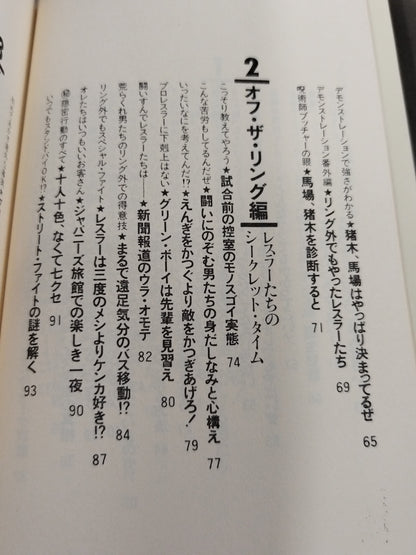 デモンストレーションで強さがわかる★猪木、馬場はやっぱり決まってるぜ 65
デモンストレーション番外編★リング外でもやったレスラーたち 69
呪術師ブッチャーの眼★馬場、猪木を診断すると 71
2 オフ・ザ・リング編 レスラーたちのシークレット・タイム
こっそり教えてやろう★試合前の控室のモノスゴイ実態 74
こんな苦労もしてるんだぜ★闘いにのぞむ男たちの身だしなみと心構え 77
いったいなにを考えてんだ!?★えんぎをかつぐより敵をかつぎあげろ! 79
プロレスラーに下剋上はない★グリーン・ボーイは先輩を見習え 80
闘いすんでレスラーたちは――★新聞報道のウラ・オモテ 82
荒らくれ男たちのリング外での得意技★まるで遠足気分のバス移動!? 84
リング外でもスペシャル・ファイト★レスラーは三度のメシよりケンカ好き!? 87
オレたちはいつもいいお客さん★ジャパニーズ旅館での楽しき一夜 90
㊙隠密行動のすべて★十人十色、なくて七クセ 91
いつでもスタンバイOK!?★ストリート・ファイトの謎を解く 93